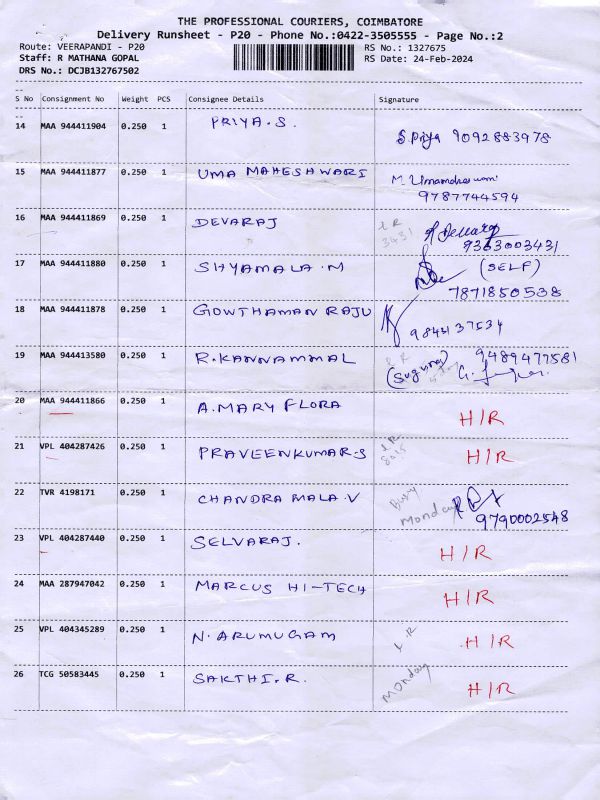 THE PROFESSIONAL COURIERS, COIMBATORE
Delivery Runsheet - P20 - Phone No.:0422-3505555 - Page No.:2
Route: VEERAPANDI - P20 RS No.: 1327675
Staff: R MATHANA GOPAL RS Date: 24-Feb-2024
DRS No.: DCJB132767502
S No Consignment No Weight PCS Consignee Details Signature
14 MAA 944411904 0.250 1 PRIYA.S. S.Priya 9092883978
15 MAA 944411877 0.250 1 UMA MAHESHWARI M. Umamaheswari
9787744594
16 MAA 944411869 0.250 1 DEVARAJ 3431
9363003431
17 MAA 944411880 0.250 1 SHYAMALA.M (SELF)
7871850538
18 MAA 944411878 0.250 1 GOWTHAMAN RAJU 9843137534
19 MAA 944413580 0.250 1 R.KANNAMMAL 9489477581
(Suguna)
20 MAA 944411866 0.250 1 A.MARY FLORA H/R
21 VPL 404287426 0.250 1 PRAVEENKUMAR.S H/R
22 TVR 4198171 0.250 1 CHANDRA MALA.V Busy
Monday 9790002548
23 VPL 404287440 0.250 1 SELVARAJ. H/R
24 MAA 287947042 0.250 1 MARCUS HI-TECH H/R
25 VPL 404345289 0.250 1 N.ARUMUGAM H/R
26 TCG 50583445 0.250 1 SAKTHI.R. Monday H/R